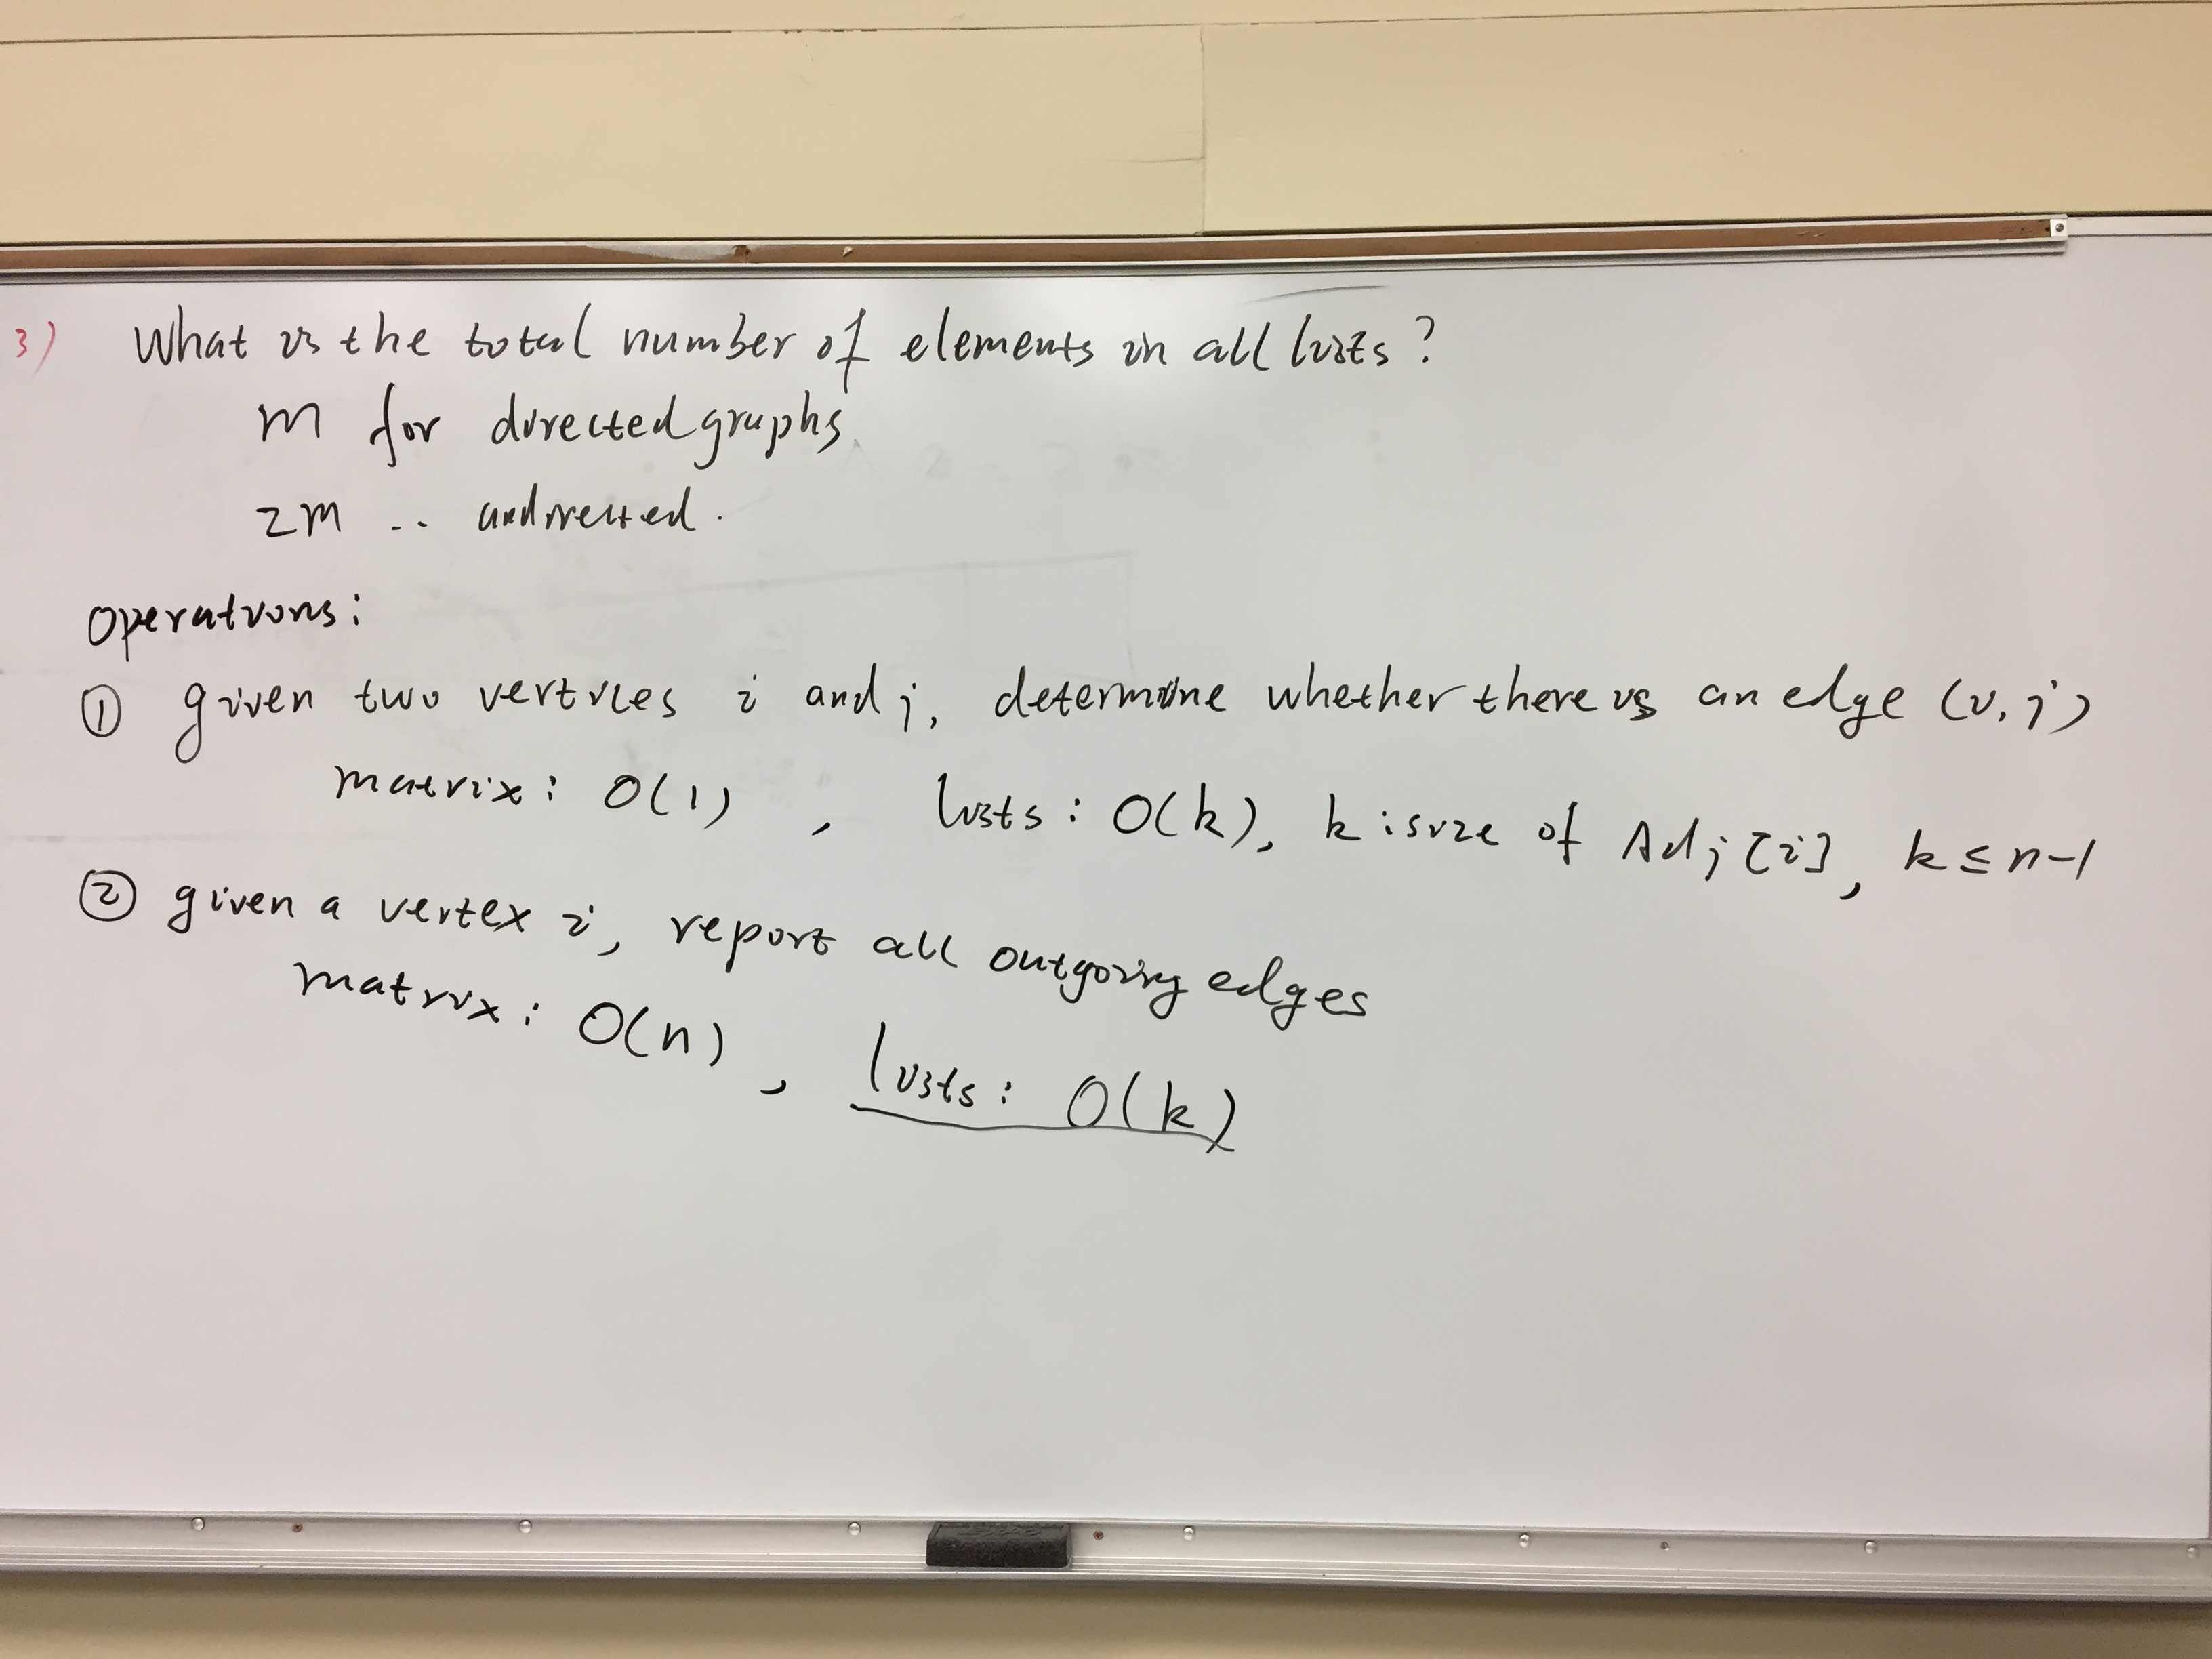 3) What is the total number of elements in all lists?
m for directed graphs
2m .. undirected.
Operations:
① given two vertices i and j, determine whether there is an edge (i, j)
matrix: O(1), lists: O(k), k: size of Adj[i], k ≤ n-1
② given a vertex i, report all outgoing edges
matrix: O(n), lists: O(k)